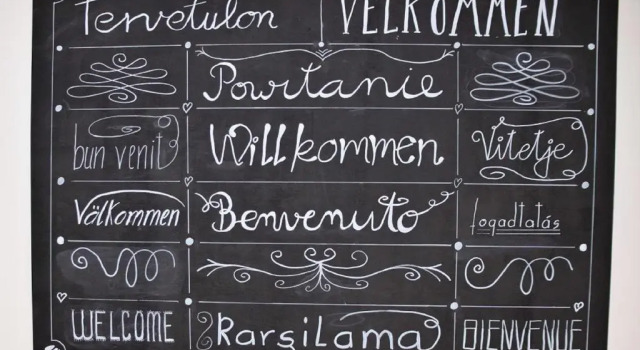 Tervetulon
VELKOMMEN
Powitanie
bun venit
Willkommen
Vitetje
Välkommen
Benvenuto
fogadtatás
WELCOME
Karşılama
BIENVENUE